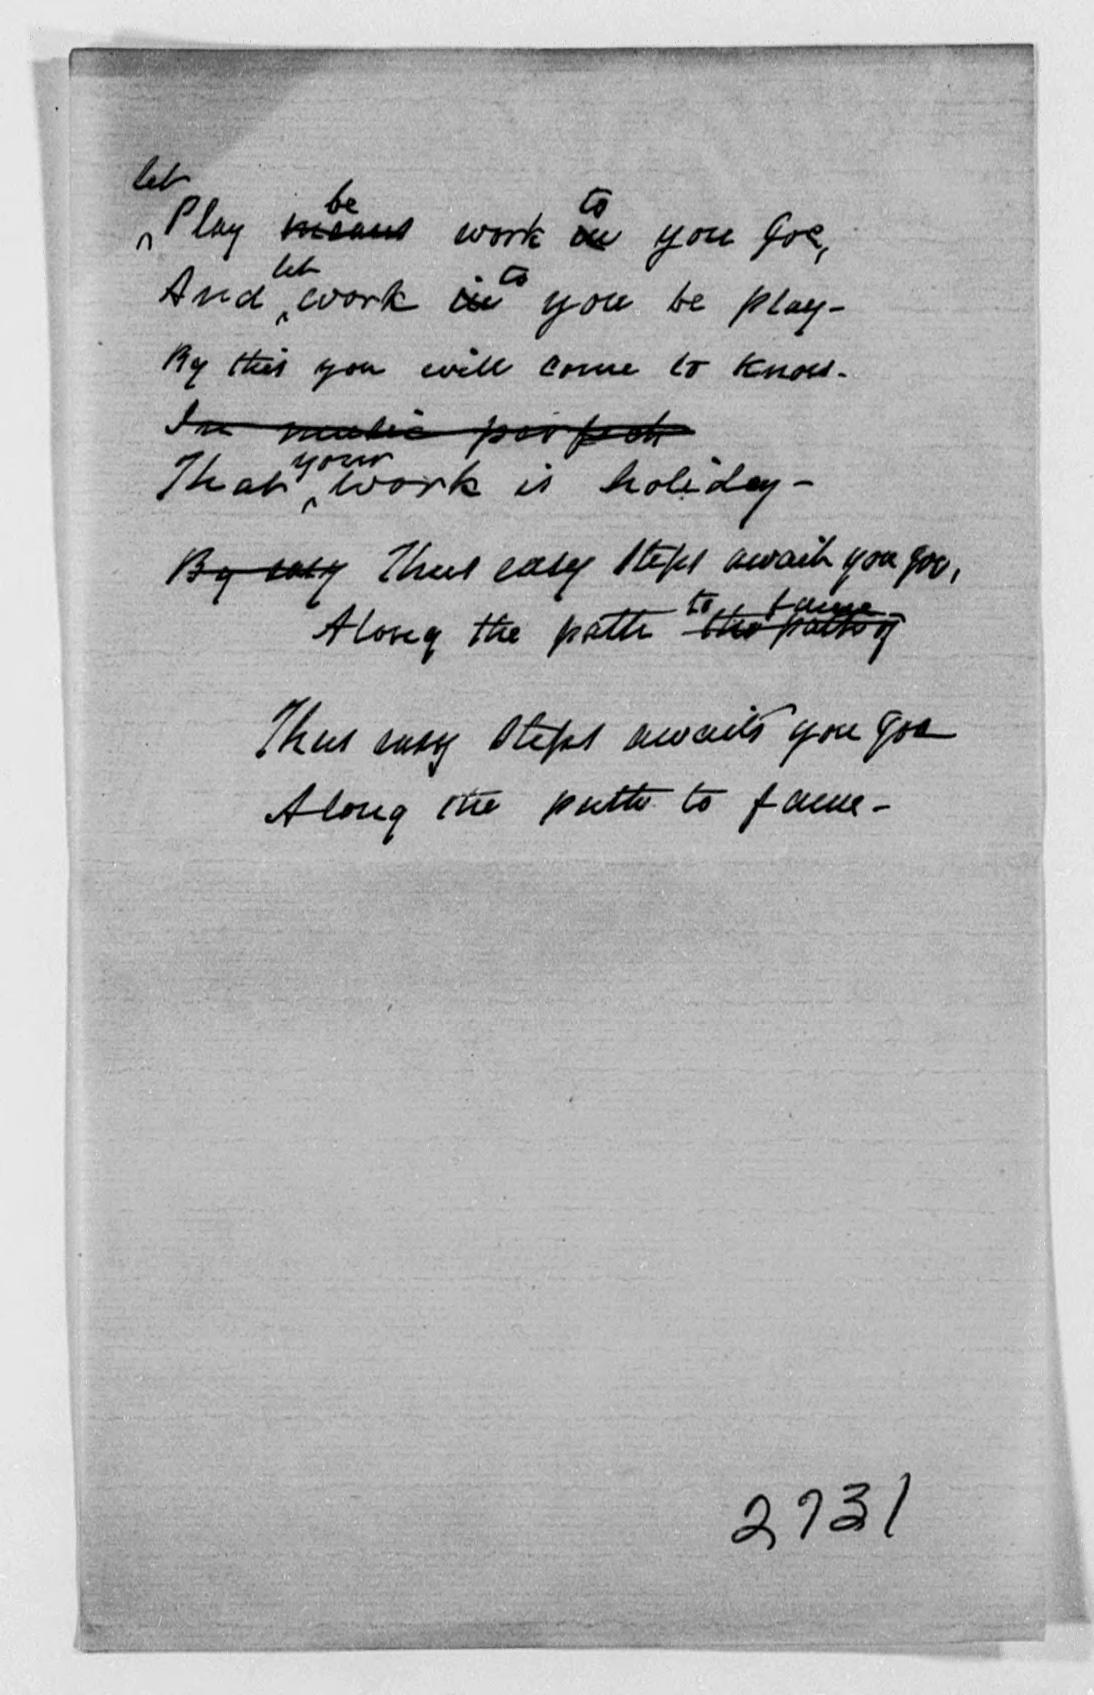 let
Play means be work in to you Joe,
And let work in to you be play-
By this you will come to know-
In music perfect
That your work is holiday-
By easy Thus easy steps await you Joe,
Along the path the path of to fame-
Thus easy steps awaits you Joe
Along the path to fame-
2731